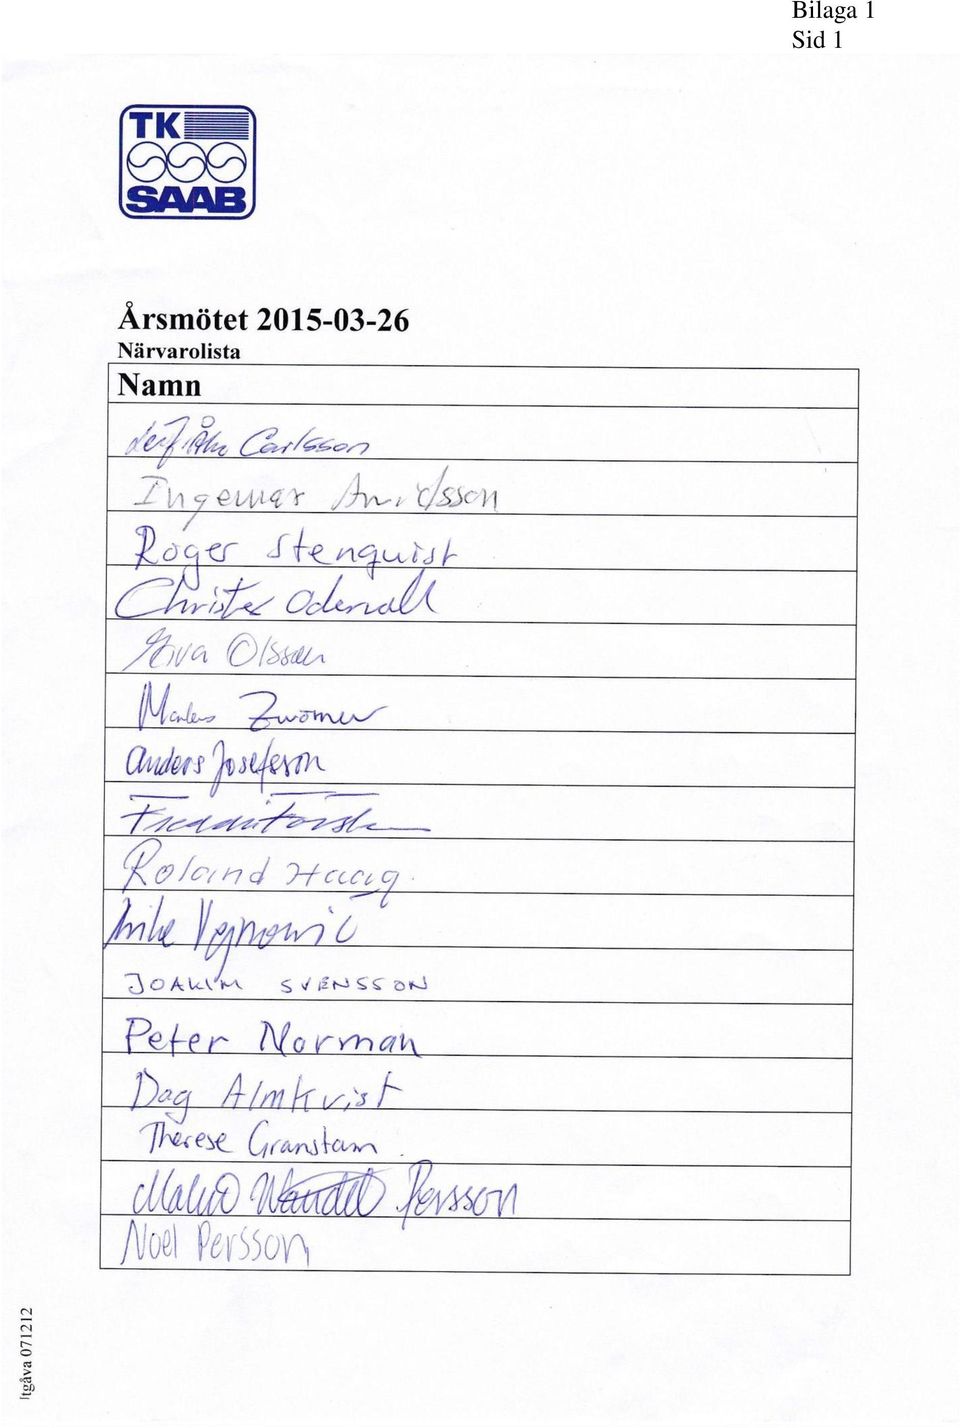 Bilaga 1
Sid 1
TK
SAAB
Årsmötet 2015-03-26
Närvarolista
Namn
Leif-Åke Carlsson
Ingemar Arvidsson
Roger Stenquist
Christer Odervall
Olsson
Zwörner
Anders Josefsson
Roland Haag
Joakim Svensson
Peter Norman
Dag Almkvist
Therese Granstam
Malin Wandel Persson
Noel Persson
tgåva 071212